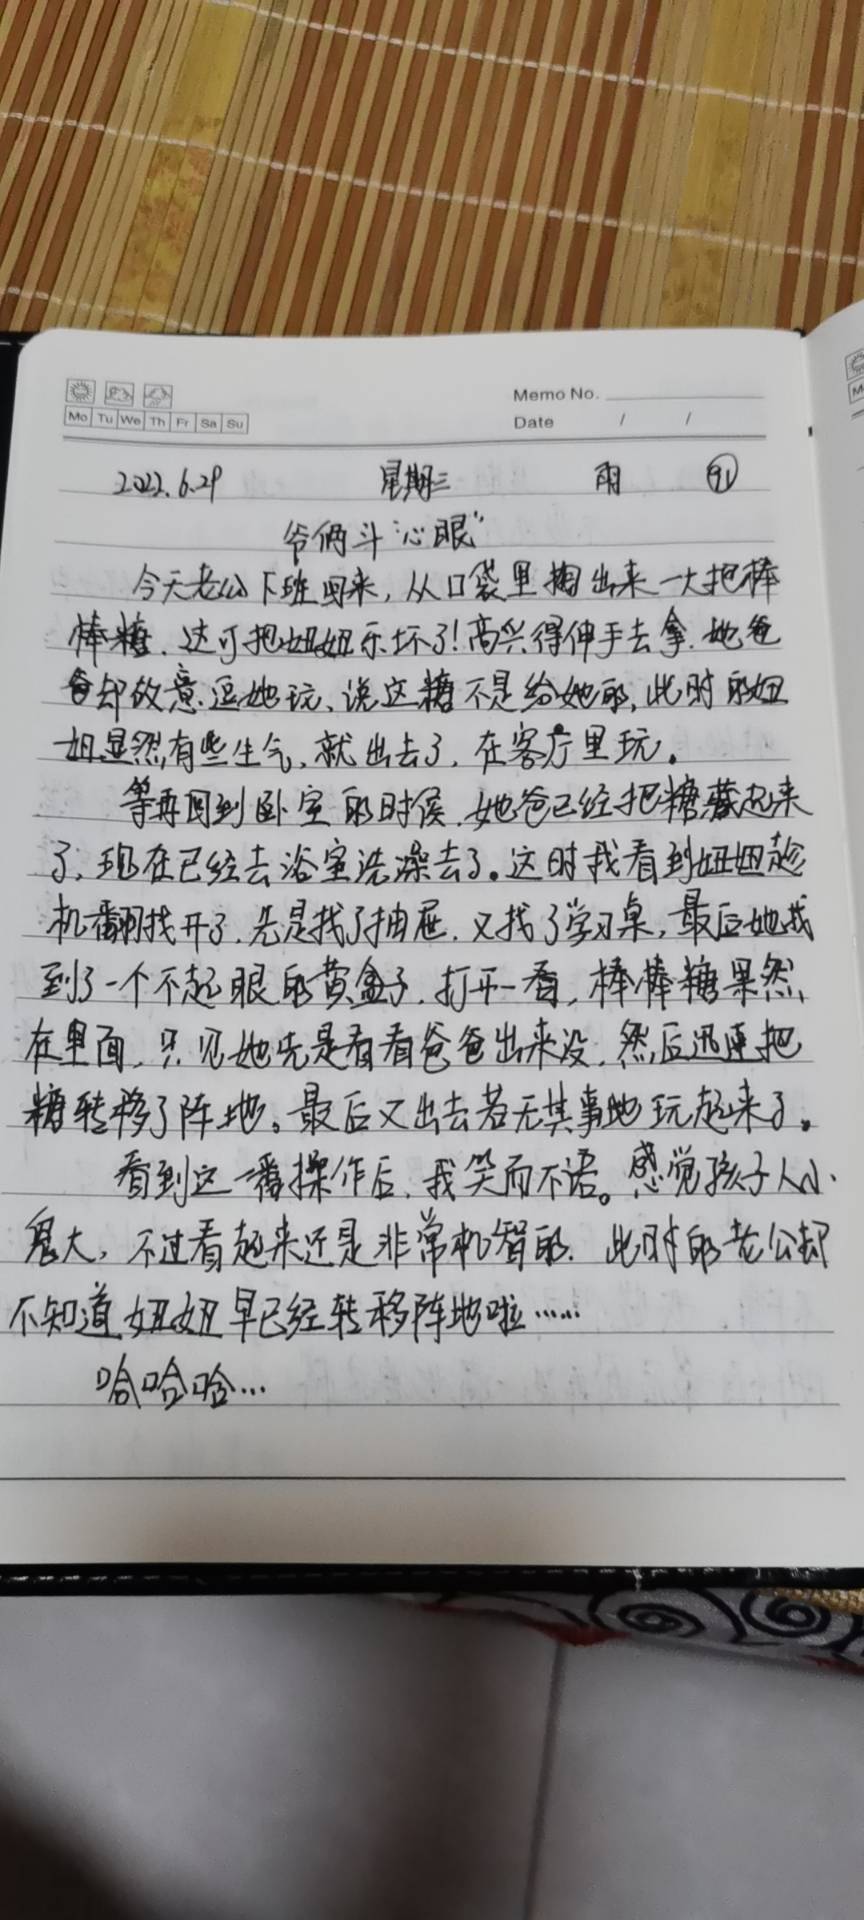 Memo No.
Mo Tu We Th Fr Sa Su
Date / /
2022.6.29 星期三 雨 91
爷俩斗“心眼”
今天老公下班回来，从口袋里掏出来一大把棒
棒糖，这可把妞妞乐坏了！高兴得伸手去拿，她爸
爸却故意逗她玩，说这糖不是给她的，此时的妞
妞显然有些生气，就出去了，在客厅里玩。
等再回到卧室的时候，她爸已经把糖藏起来
了，现在已经去浴室洗澡去了。这时我看到妞妞趁
机翻找开了，先是找了抽屉，又找了学习桌，最后她找
到了一个不起眼的黄盒子，打开一看，棒棒糖果然
在里面，只见她先是看看爸爸出来没，然后迅速把
糖转移了阵地。最后又出去若无其事地玩起来了。
看到这一番操作后，我笑而不语。感觉孩子人小
鬼大，不过看起来还是非常机智的，此时的老公却
不知道妞妞早已经转移阵地啦……
哈哈哈…